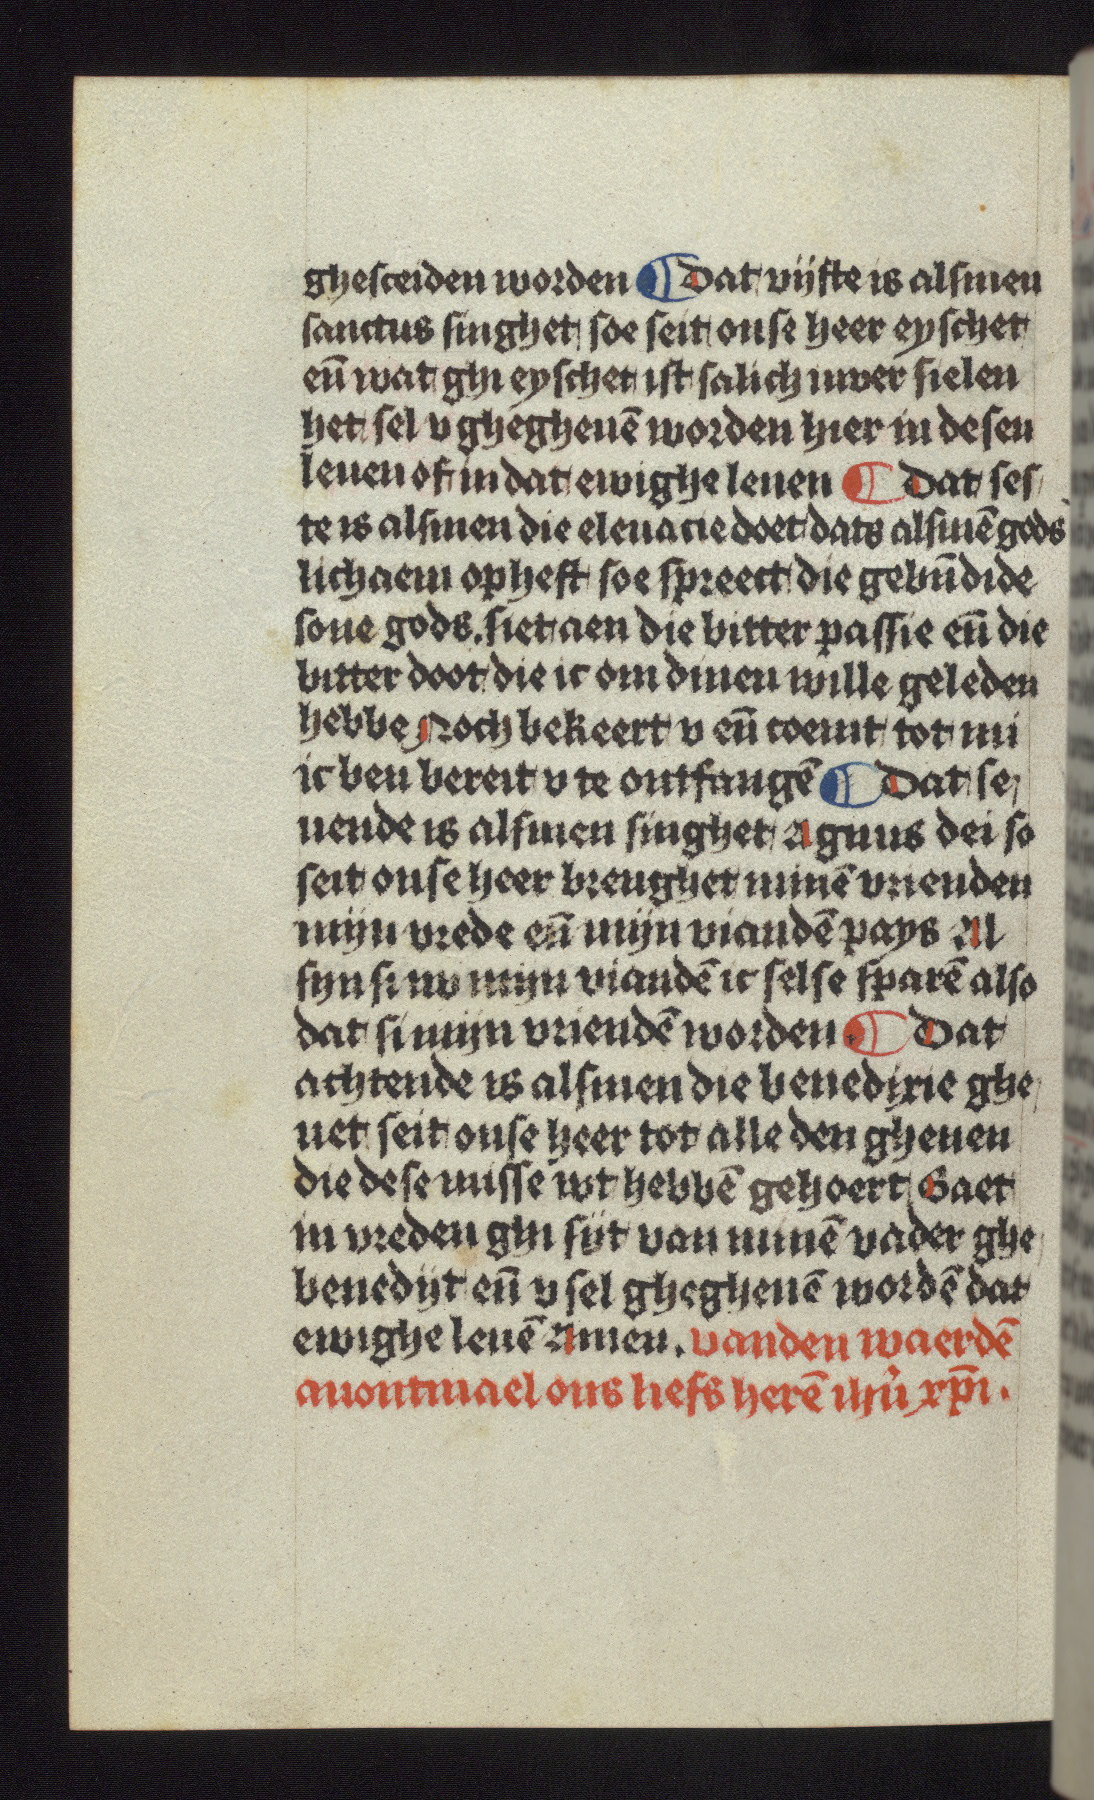 ghesceiden worden ¶ Dat vijfte is alsmen
sanctus singhet soe seit onse heer eyschet
eñ wat ghi eyschet ist salich uwer sielen
het sel v ghegheuē worden hier in desen
leuen of in dat ewighe leuen ¶ Dat ses
te is alsmen die eleuacie doet dats alsmē gods
lichaem opheft soe spreect die gebn̄dide
sone gods. siet aen die bitter passie eñ die
bitter doot die ic om dinen wille geleden
hebbe Noch bekeert v eñ coemt tot mi
ic ben bereit v te ontfangē ¶ Dat se
uende is alsmen singhet Agnus dei so
seit onse heer brenghet minē vrienden
mijn vrede eñ mijn viandē pays Al
sijn si nv mijn viandē ic selse sparē also
dat si mijn vriendē worden. ¶ Dat
achtende is alsmen die benedixie ghe
uet seit onse heer tot alle den ghenen
die dese misse wt hebbē gehoert Gaet
in vreden ghi sijt van minē vader ghe
benedijt eñ v sel ghegheuē wordē dat
ewighe leuē Amen. vanden waerdē
auontmael ons liefs herē ihū xp̄i.